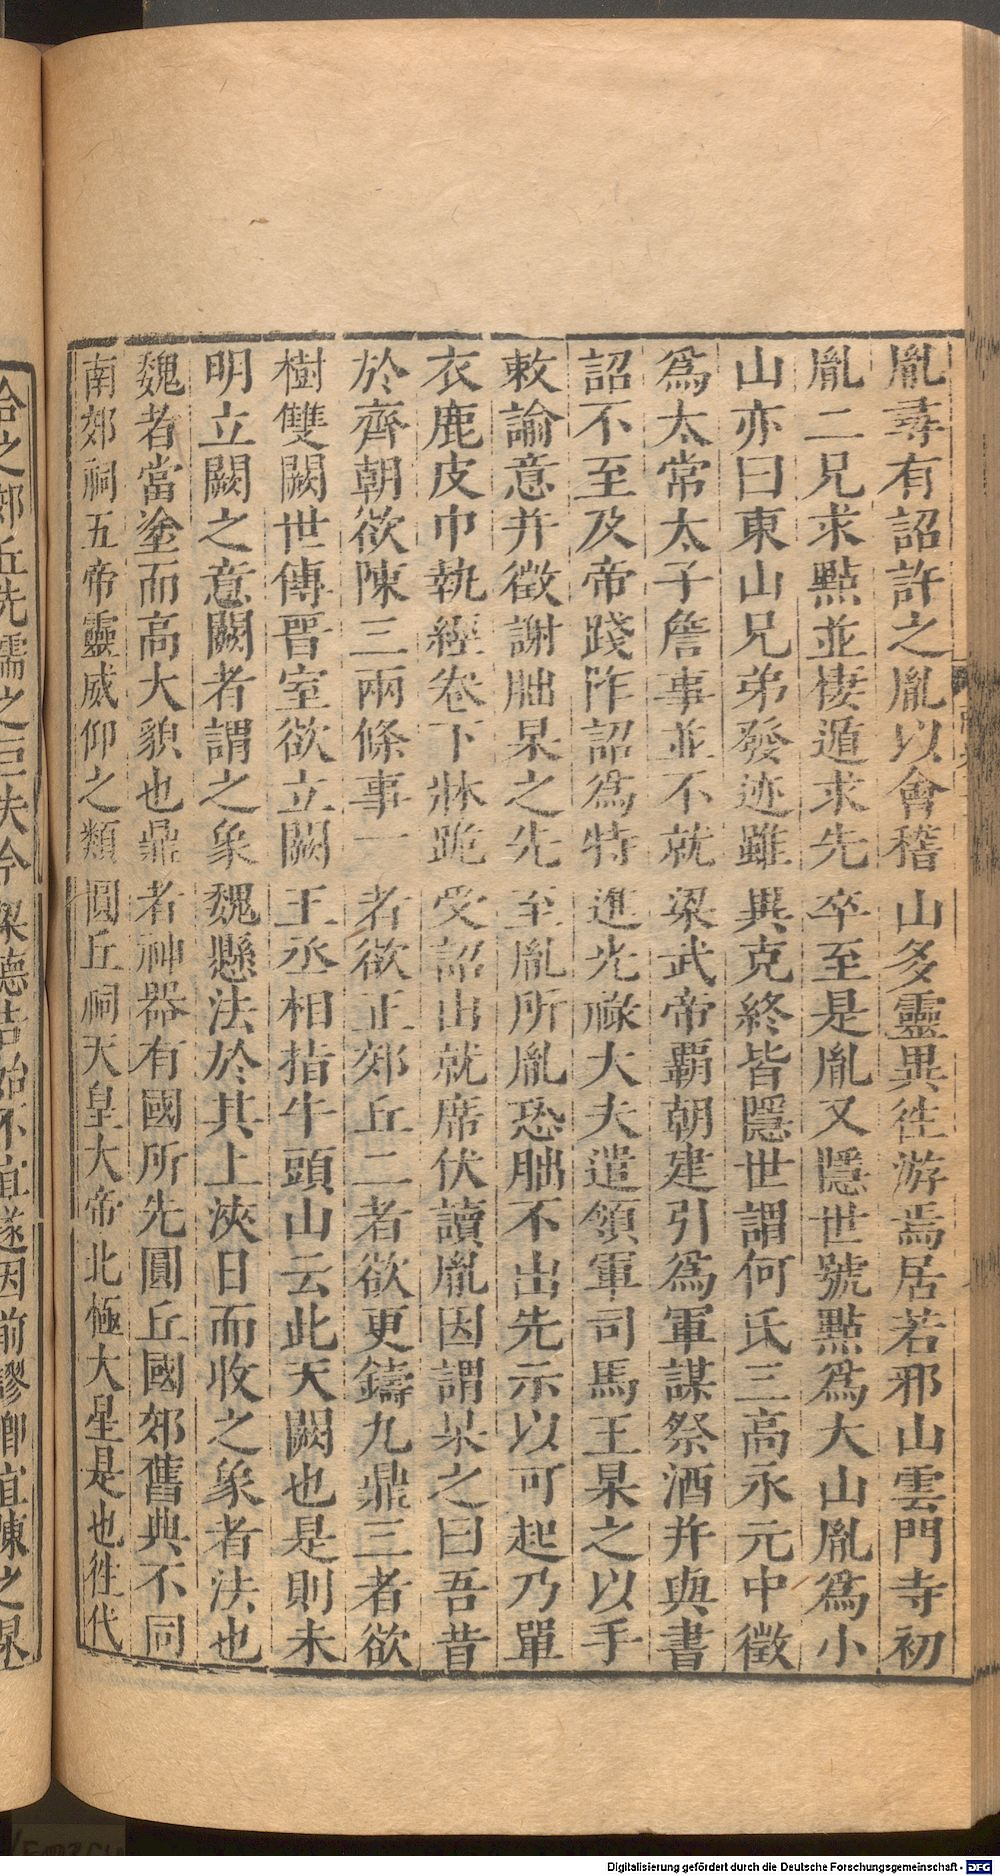 胤尋有詔許之胤以會稽山多靈異徃游焉居若邪山雲門寺初
胤二兄求點並棲遁求先卒至是胤又隱世號點爲大山胤爲小
山亦曰東山兄弟發迹雖異克終皆隱世謂何氏三高永元中徵
爲太常太子詹事並不就梁武帝霸朝建引爲軍謀祭酒并與書
詔不至及帝踐阼詔爲特進光祿大夫遣領軍司馬王杲之以手
敕諭意并徵謝朏杲之先至胤所胤恐朏不出先示以可起乃單
衣鹿皮巾執經卷下牀跪受詔出就席伏讀胤因謂杲之曰吾昔
於齊朝欲陳三兩條事一者欲正郊丘二者欲更鑄九鼎三者欲
樹雙闕世傳晉室欲立闕王丞相指牛頭山云此天闕也是則未
明立闕之意闕者謂之象魏懸法於其上浹日而收之象者法也
魏者當塗而高大貌也鼎者神器有國所先圓丘國郊舊典不同
南郊祠五帝靈威仰之類圓丘祠天皇大帝北極大星是也徃代
合之郊丘先儒之巨失今梁德告始不宜遂因前謬卿宜陳之杲
Digitalisierung gefördert durch die Deutsche Forschungsgemeinschaft - DFG